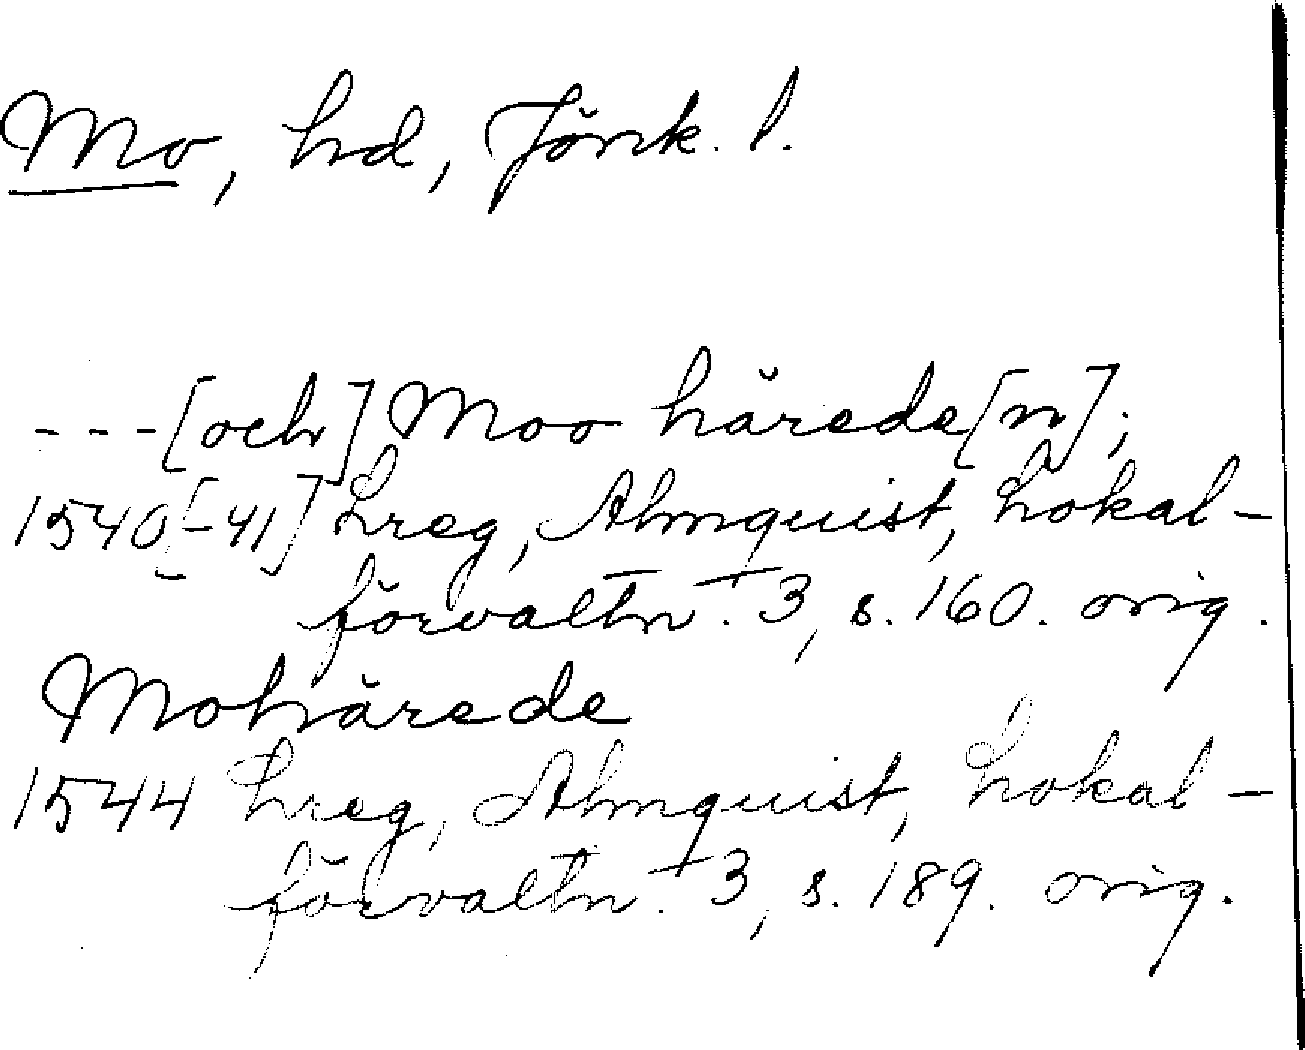 Mo, hd, Jönk. l.
---[och] Moo härede[n];
1540[-41] Lreg, Almquist, Lokal-
förvaltn. 3, s. 160. orig.
Mohärede
1544 Lreg, Almquist, Lokal-
förvaltn. 3, s. 189. orig.